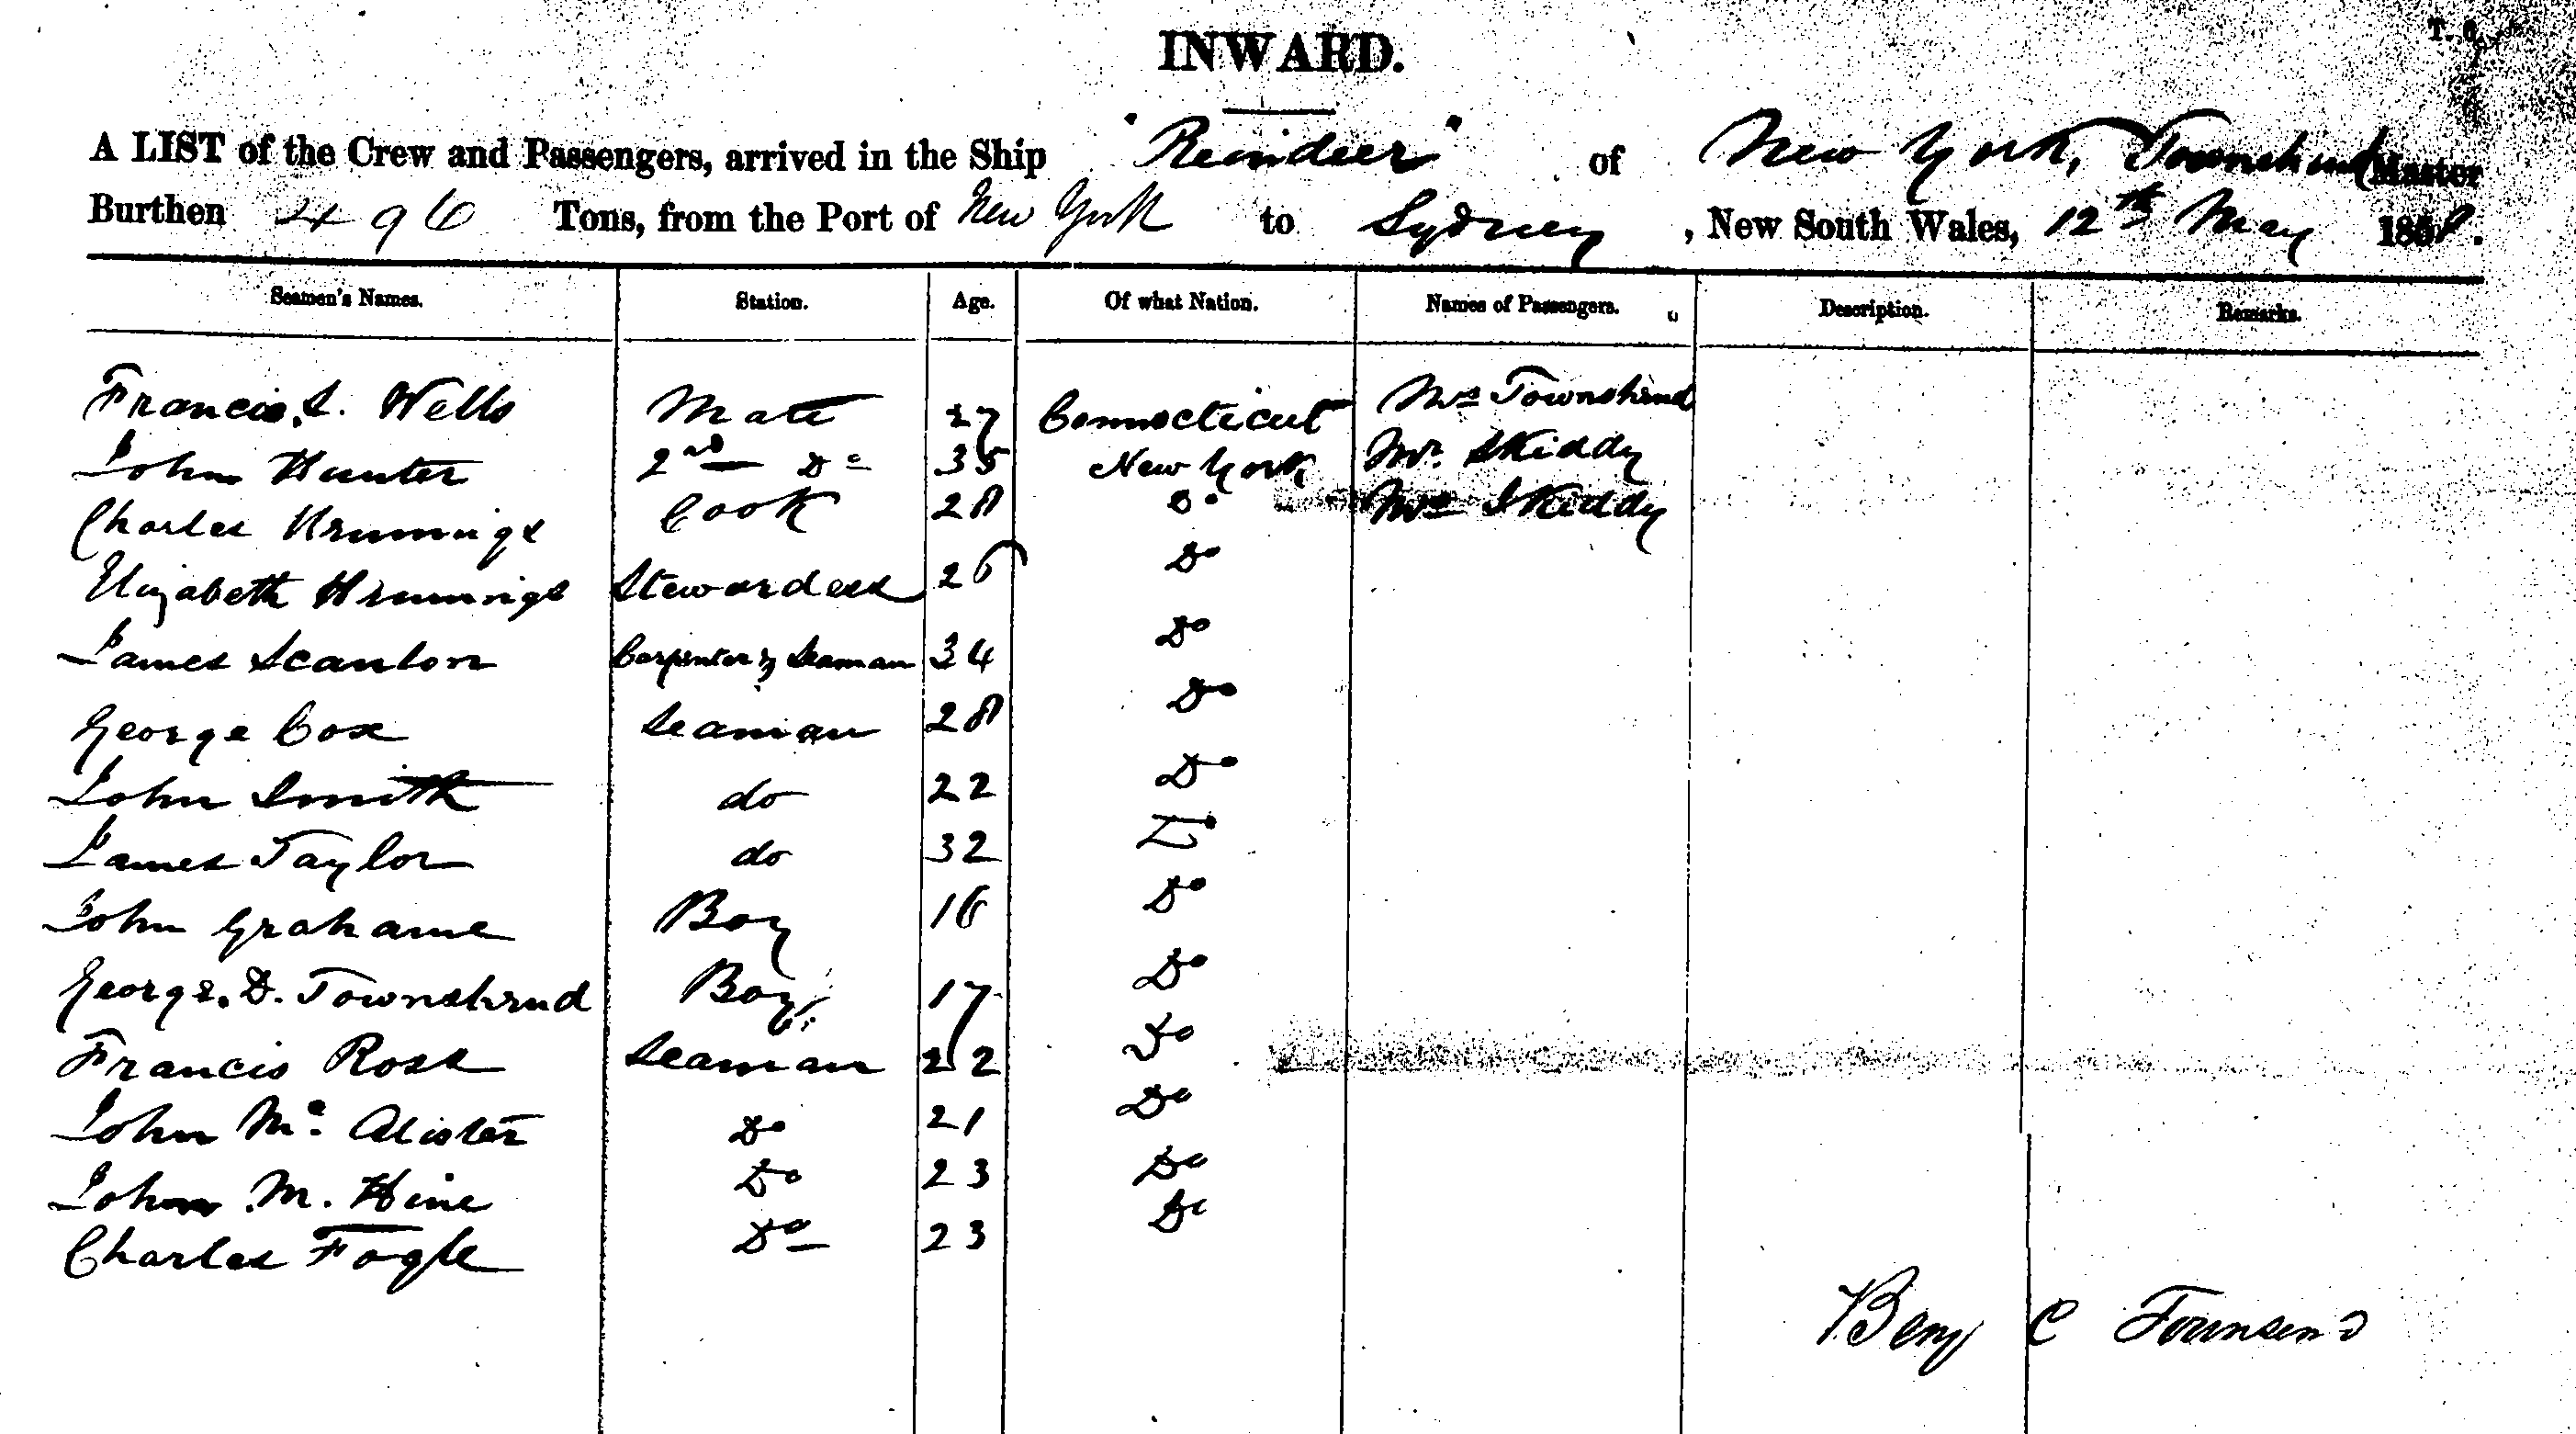 INWARD.
A LIST of the Crew and Passengers, arrived in the Ship "Reindeer" of New York, Townshend Master
Burthen 496 Tons, from the Port of New York to Sydney, New South Wales, 12th May 185
Seamen's Names. Station. Age. Of what Nation. Names of Passengers. Description. Remarks.
Francis. S. Wells Mate 27 Connecticut Mrs Townshend
John Hunter 2nd Do 35 New York Mr. Skiddy
Charles 28 Cook Do Mrs Skiddy
Elizabeth Stewardess 26 Do
James Scanlon Carpenter & Seaman 34 Do
George Cox Seaman 28 Do
John Smith do 22 Do
James Taylor do 32 Do
John Grahame Boy 16 Do
George. D. Townshend Boy 17 Do
Francis Ross Seaman 22 Do
John Mc. Alister Do 21 Do
John M. Hine Do 23 Do
Charles Fogle Do 23 Do
Benj C Townsend